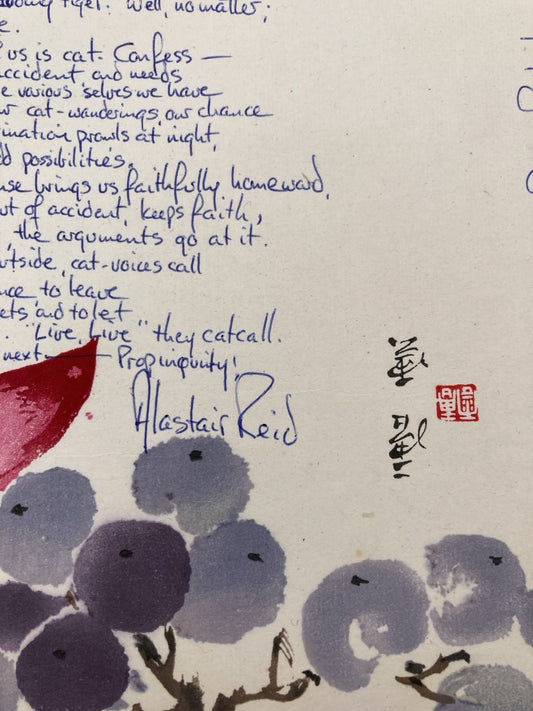 tiger. Well, no matter;
us is cat. Confess —
accident and needs
various selves we have
cat-wanderings, our chance
prowls at night,
possibilities.
brings us faithfully homeward,
of accident, keeps faith,
, the arguments go at it.
outside, cat-voices call
to leave
and to let
. "Live, live" they catcall.
next — Propinquity!
Alastair Reid